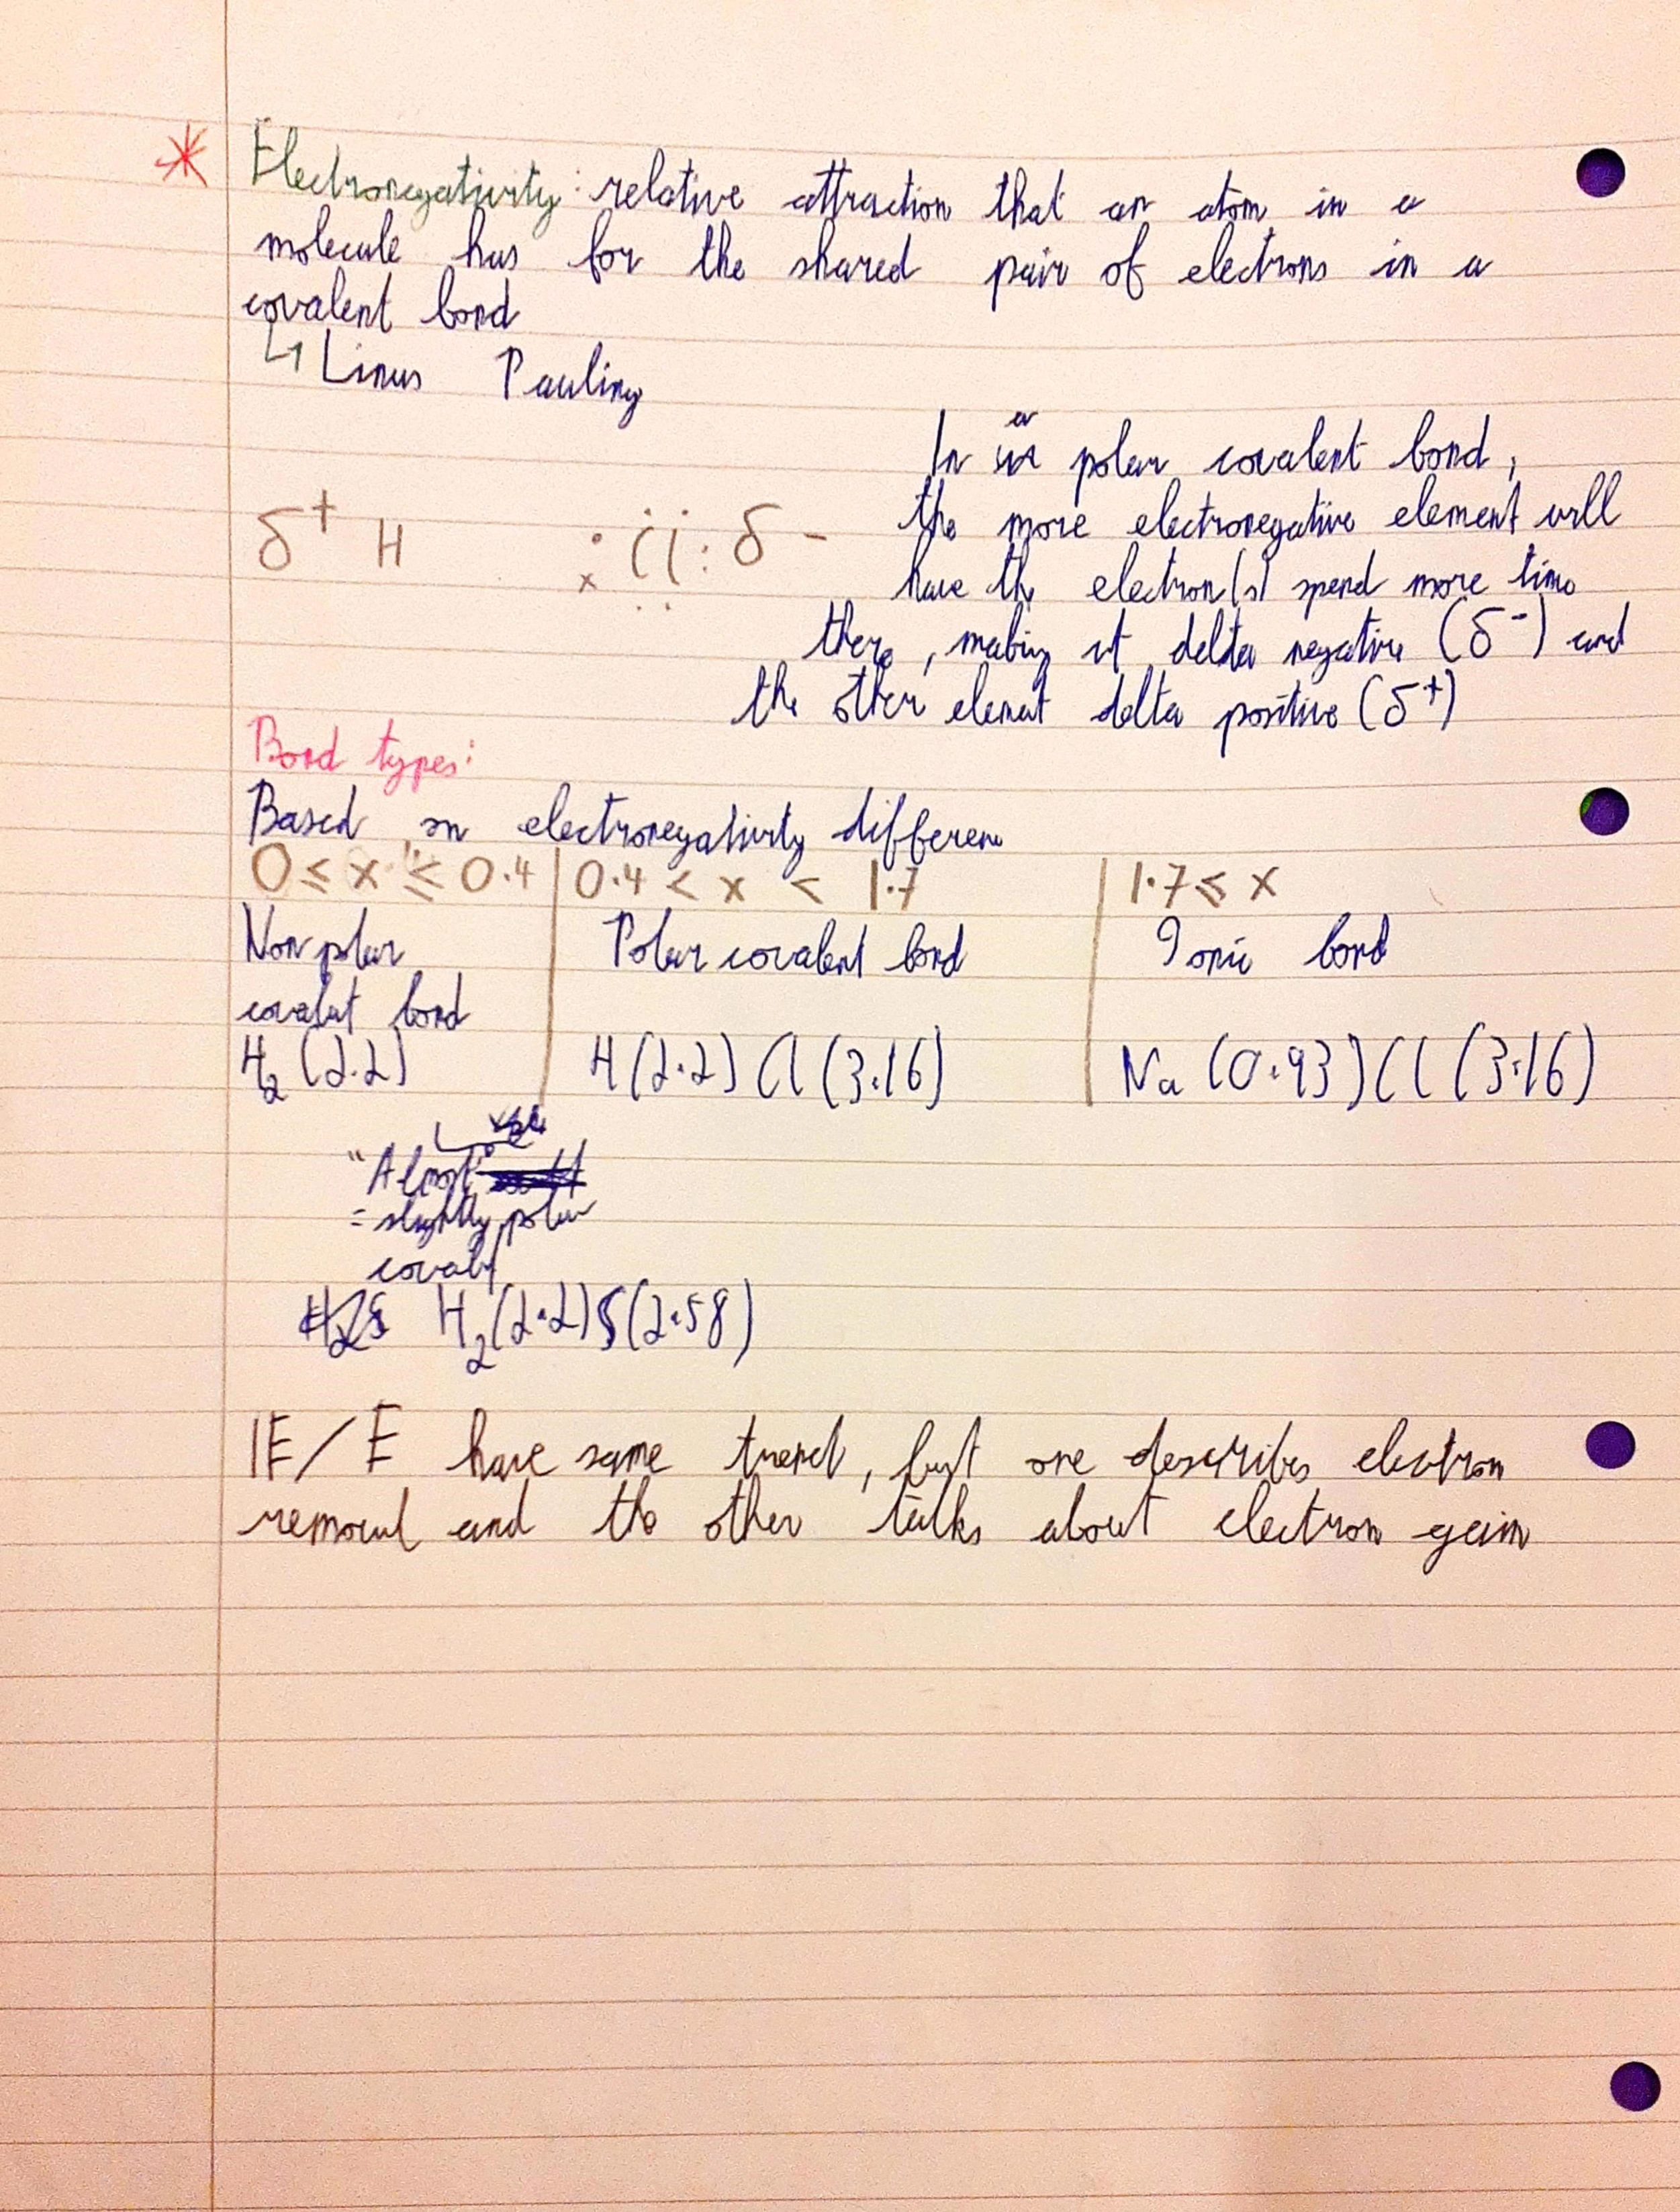 * Electronegativity: relative attraction that an atom in a
molecule has for the shared pair of electrons in a
covalent bond
↳ Linus Pauling
In a polar covalent bond,
the more electronegative element will
have the electron(s) spend more time
there, making it delta negative (δ⁻) and
the other element delta positive (δ⁺)
δ⁺ H :Cl: δ -
Bond types:
Based on electronegativity differen
0 ≤ x ≤ 0.4 | 0.4 < x < 1.7 | 1.7 ≤ x
Non polar
covalent bond
Polar covalent bond
Ionic bond
H₂ (2.2)
H (2.2) Cl (3.16)
Na (0.93) Cl (3.16)
"Almost"
= slightly polar
covalt
H₂(2.2)S(2.58)
IE/E have same trend, but one describes electron
removal and the other talks about electron gain